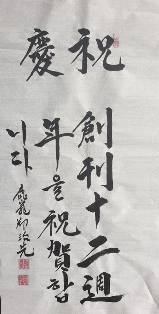 祝慶
創刊十二週
年을祝賀합
니다